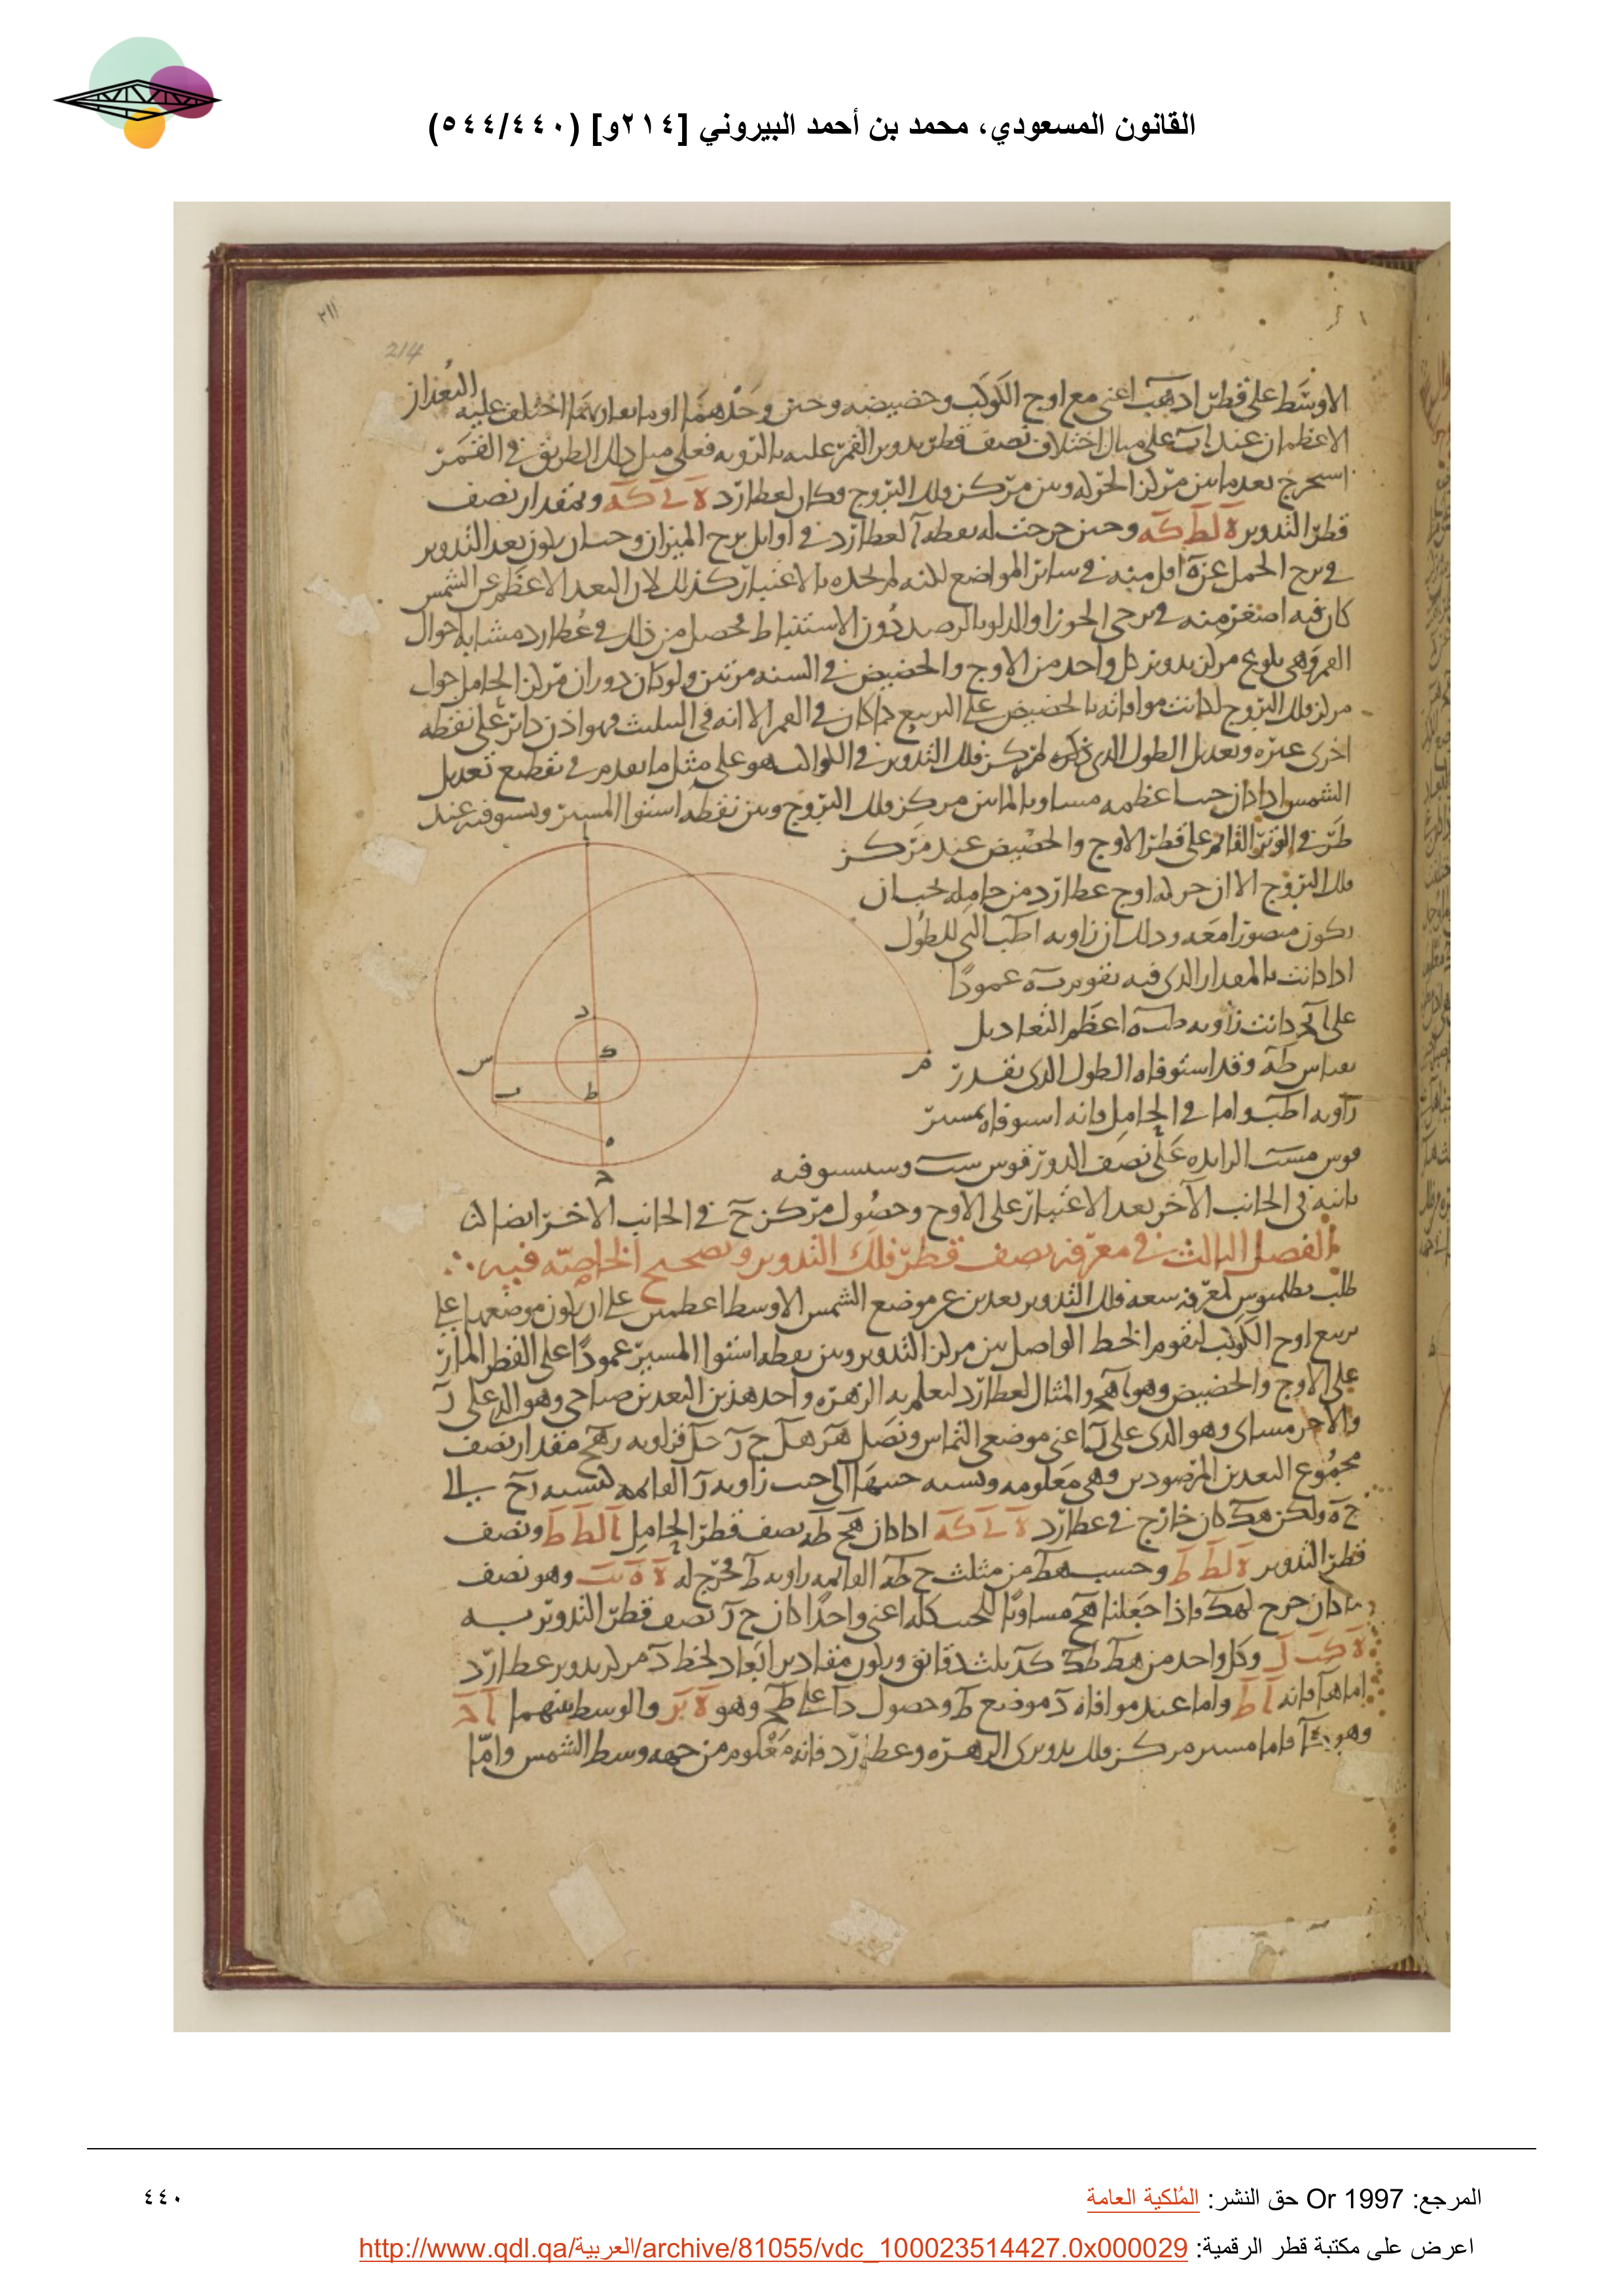 القانون المسعودي، محمد بن أحمد البيروني [٢١٤و] (٥٤٤/٤٤٠)
٢١١
214
الاوسط على قطر ادهب اعنى مع اوج الكوكب وحضيضه وحين وحدهما اختلف عليه البعدان
الاعظمان عند اب على مثال اختلاف نصف قطر تدوير القمر عليه بالرويه فعلى مثل ذلك الطريق في القمر
استخرج بعد ما بين مركز الحركه وبين مركز فلك البروج وكان لعطارد ه ل كه وبمقدار نصف
قطر التدوير ه لط كه وحين خرجت له نقطه آ لعطارد في اوايل برج الميزان وجب ان يكون بعد التدوير
في برج الحمل عنه اقل منه في سائر المواضع لكنه لم يجده بالاعتبار كذلك لان البعد الاعظم عن الشمس
كان فيه اصغر منه في برجى الجوزا والدلو بالرصد دون الاستنباط فحصل من ذلك في عطارد مشابه احوال
القمر وهى بلوغ مركز تدوير كل واحد من الاوج والحضيض في السنه مرتين ولو كان دوران مركز الحامل حول
مركز فلك البروج لكانت موافاته بالحضيض على التربيع كما كان في القمر الا انه في التثليث فهو اذن دائر على نقطه
اخرى غيره وتعديل الطول الذى ذكره لمركز فلك التدوير في الكواكب هو على مثل ما تقدم في تقطيع تعديل
الشمس اذا كان جيب اعظمه مساويا لما بين مركز فلك البروج وبين نقطه استوا المسير ويستوفيه عند
طرفى الوتر القائم على قطر الاوج والحضيض عند مركز
فلك البروج الا ان حركه اوج عطارد من حامله يجب ان
يكون متصورا معه وذلك ان زاويه اطب التى للطول
اذا كانت بالمقدار الذى فيه يقوم ب ه عمودا
على اح كانت زاويه طب ه اعظم التعاديل
بقياس ط ه وقد استوفاه الطول الذى بقدر
زاويه اطب واما في الحامل فانه استوفاه بمسير
قوس مست الزايده على نصف الدور قوس ست وسيستوفيه
ثانيه في الجانب الآخر بعد الاعتبار على الاوج وحصول مركز ح في الجانب الاخر ايضا
ا
د
ك
س
م
ب
ط
ه
ح
الفصل الثالث في معرفه نصف قطر فلك التدوير وتصحيح الخاصه فيه
طلب بطلميوس لمعرفه سعه فلك التدوير بعدين عن موضع الشمس الاوسط اعظمين على ان يكون موضعها على
تربيع اوج الكوكب ليقوم الخط الواصل بين مركز التدوير وبين نقطه استوا المسير عمودا على القطر المار
على الاوج والحضيض وهو اهج والمثال لعطارد ليعلم به الزهره واحد هذين البعدين صباحى وهو الذى على ر
والآخر مسائى وهو الذى على ل اعنى موضعى التماس ونصل هر هل ح ر حل فزاويه رهح مقدار نصف
مجموع البعدين المرصودين وهى معلومه ونسبه جيبها الى جيب زاويه ر القائمه كنسبه رح الى
ح ه ولكن هك كان خارج في عطارد ه ل كه اذا كان هح ط ه نصف قطر الحامل ا لط ط ونصف
قطر التدوير ه لط ط وحسب هط من مثلث ح ط ه القائمه زاويه ط فخرج له وهو نصف
ما كان خرج لهك واذا جعلنا هح مساويا للجيب كله اعنى واحدا كان ح ر نصف قطر التدوير به
ه كب ل وكل واحد من هط طك كد ثلث دقائق ويكون مقادير ابعاد لخط د مركز تدوير عطارد
اما ها فانه ا ط واما عند موافاه د موضع ط وحصول دا على طح وهو ه نر والوسط بينهما ا ح
وهو فاما مسير مركز فلك تدويرى الزهره وعطارد فانه معلوم من جهه وسط الشمس واما
المرجع: Or 1997 حق النشر: المُلكية العامة
٤٤٠
اعرض على مكتبة قطر الرقمية: http://www.qdl.qa/العربية/archive/81055/vdc_100023514427.0x000029